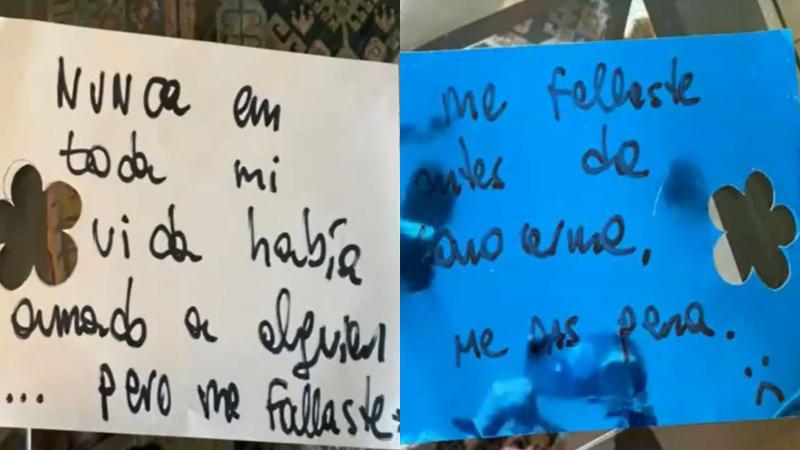 NUNCA en
toda mi
vida había
amado a alguien
... pero me fallaste
me fallaste
antes de
conocerme,
ME DAS pena.
:(